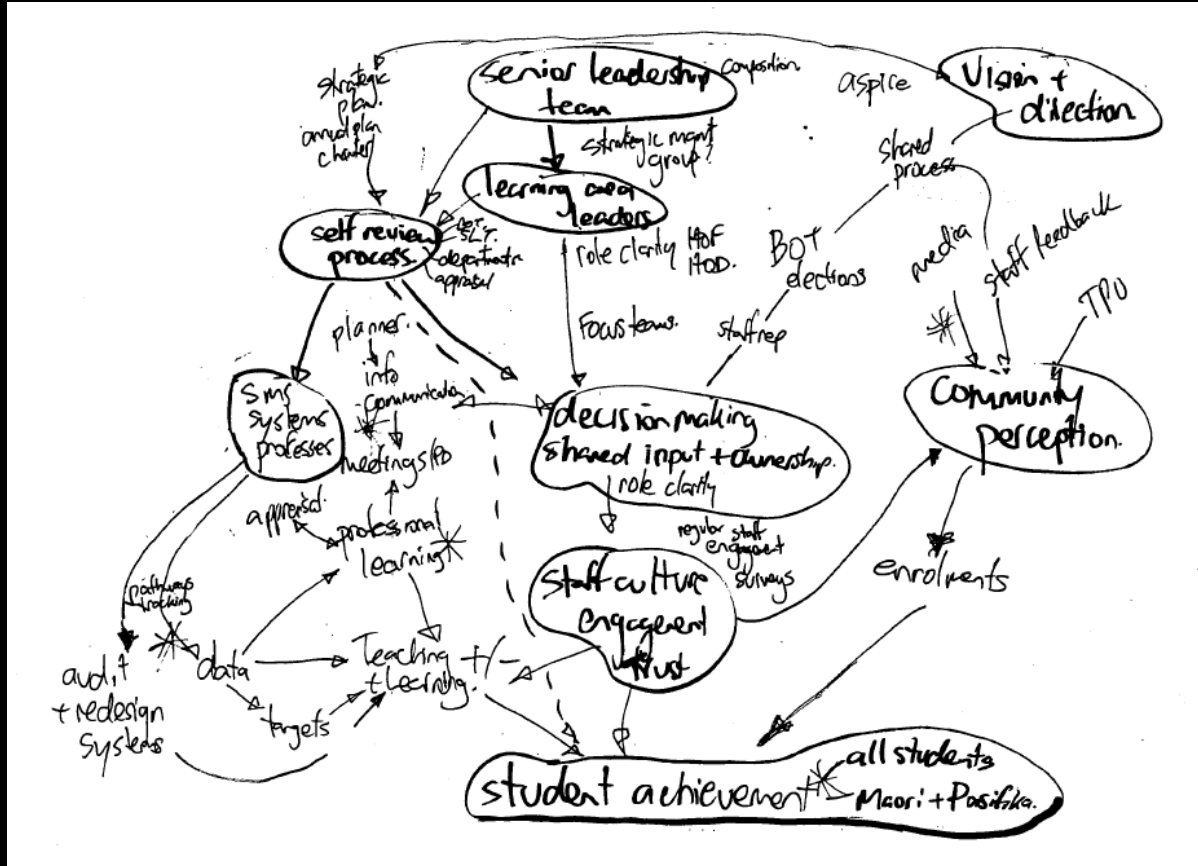 strategic
plan.
annual plan
charter
senior leadership
team
composition
aspire
Vision +
direction
strategic mgmt
group?
shared
process
learning area
leaders
self review
process.
SLT.
appraisal
role clarity HOF
HOD.
BOT
elections
media
staff feedback
TPU
planner.
Focus teams.
staff rep
info
communication
SMS
systems
processes
meetings/PD
decision making
shared input + ownership.
role clarity
community
perception.
appraisal.
professional
learning
regular staff
engagement
surveys
staff culture
engagement
trust
enrolments
pathways
tracking
data
Teaching +/-
+ Learning.
targets
audit
+ redesign
systems
student achievement
all students
Maori + Pasifika.